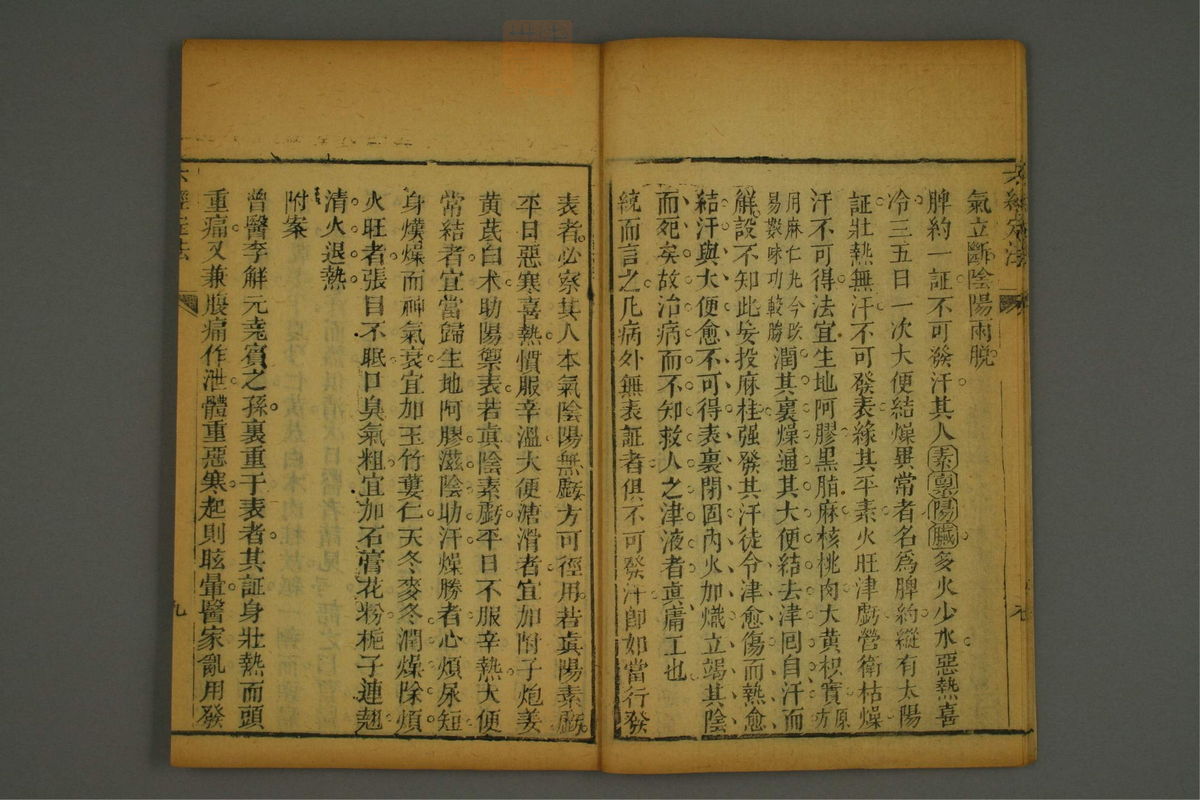 氣立斷陰陽兩脫
脾約一証不可發汗其人素稟陽臟多火少水惡熱喜
冷三五日一次大便結燥異常者名爲脾約縱有太陽
証壯熱無汗不可發表緣其平素火旺津虧營衛枯燥
汗不可得法宜生地阿膠黑脂麻核桃肉大黃枳實原方
用麻仁丸今改易數味功較勝潤其裏燥通其大便結去津回自汗而
解設不知此妄投麻桂强發其汗徒令津愈傷而熱愈
結汗與大便愈不可得表裏閉固內火加熾立竭其陰
而死矣故治病而不知救人之津液者眞庸工也
統而言之凡病外無表証者俱不可發汗卽如當行發
表者必察其人本氣陰陽無虧方可徑用若眞陽素虧
平日惡寒喜熱慣服辛溫大便溏滑者宜加附子炮姜
黃芪白术助陽禦表若眞陰素虧平日不服辛熱大便
常結者宜當歸生地阿膠滋陰助汗燥勝者心煩尿短
身熯燥而神氣衰宜加玉竹蔞仁天冬麥冬潤燥除煩
火旺者張目不眠口臭氣粗宜加石膏花粉梔子連翹
清火退熱
附案
曾醫李解元堯賓之孫裏重于表者其証身壯熱而頭
重痛又兼腹痛作泄體重惡寒起則眩暈醫家亂用發
六經定法
九